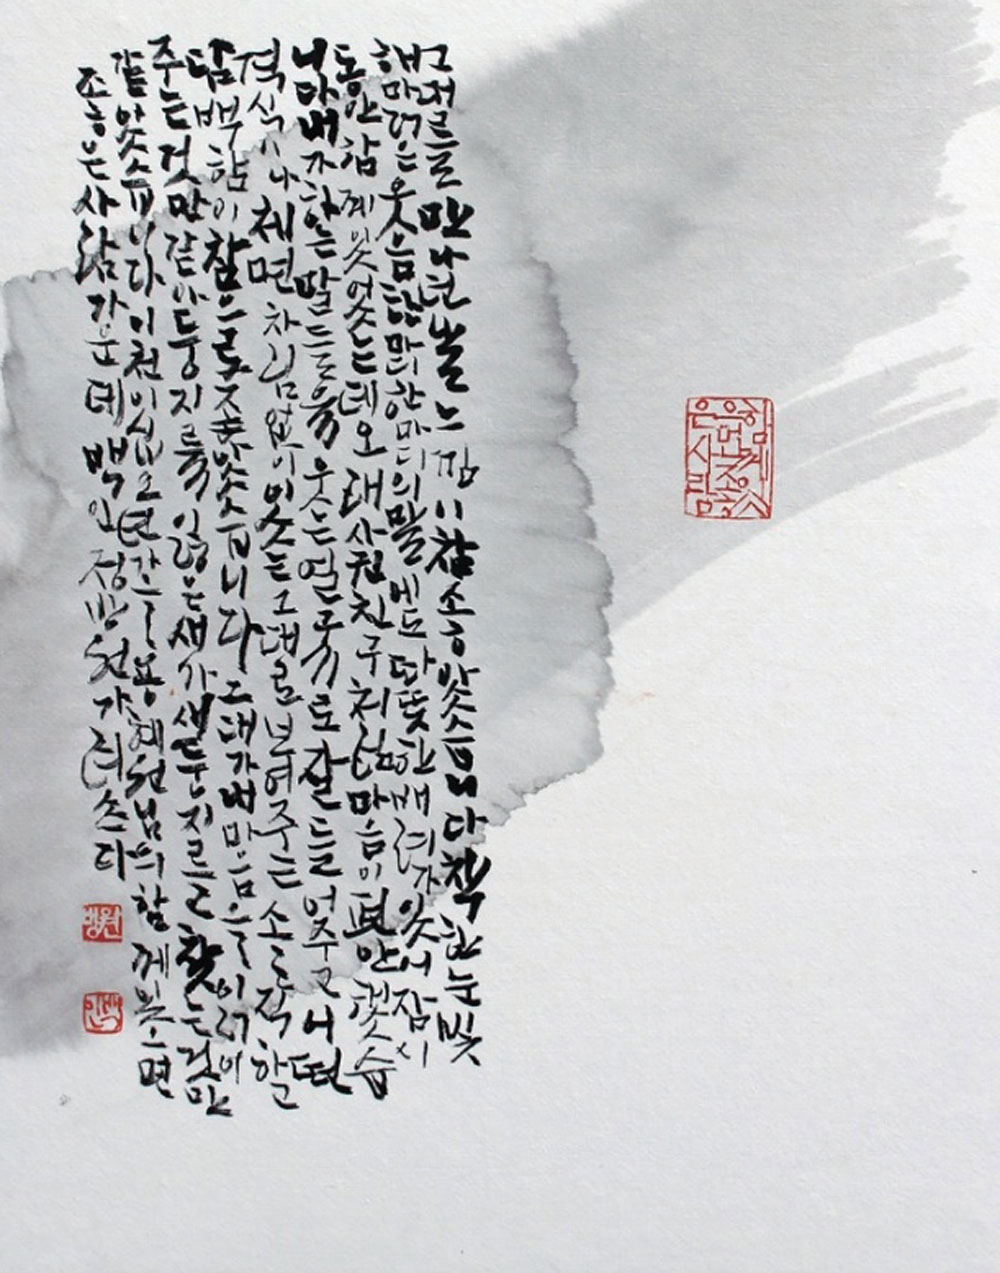 그대를 만나던 날 느낌이 참 좋았습니다 착한 눈빛
해맑은 웃음 한마디 한마디의 말에도 따뜻한 배려가 있어 잠시
동안 함께 있었는데 오래 사귄 친구처럼 마음이 편안했습
니다 내가 하는 말들을 웃는 얼굴로 잘 들어주고 어떤
격식이나 체면 차림 없이 있는 그대로 보여주는 솔직한
담백함이 참으로 좋았습니다 그대가 내 마음을 읽어
주는 것만 같아 둥지를 잃은 새가 새 둥지를 찾은 것만
같았습니다 이천이십오년 가을 용혜원님의 함께 있으면
좋은 사람 가운데 백인 가려 쓰다
함께 있으면 좋은 사람